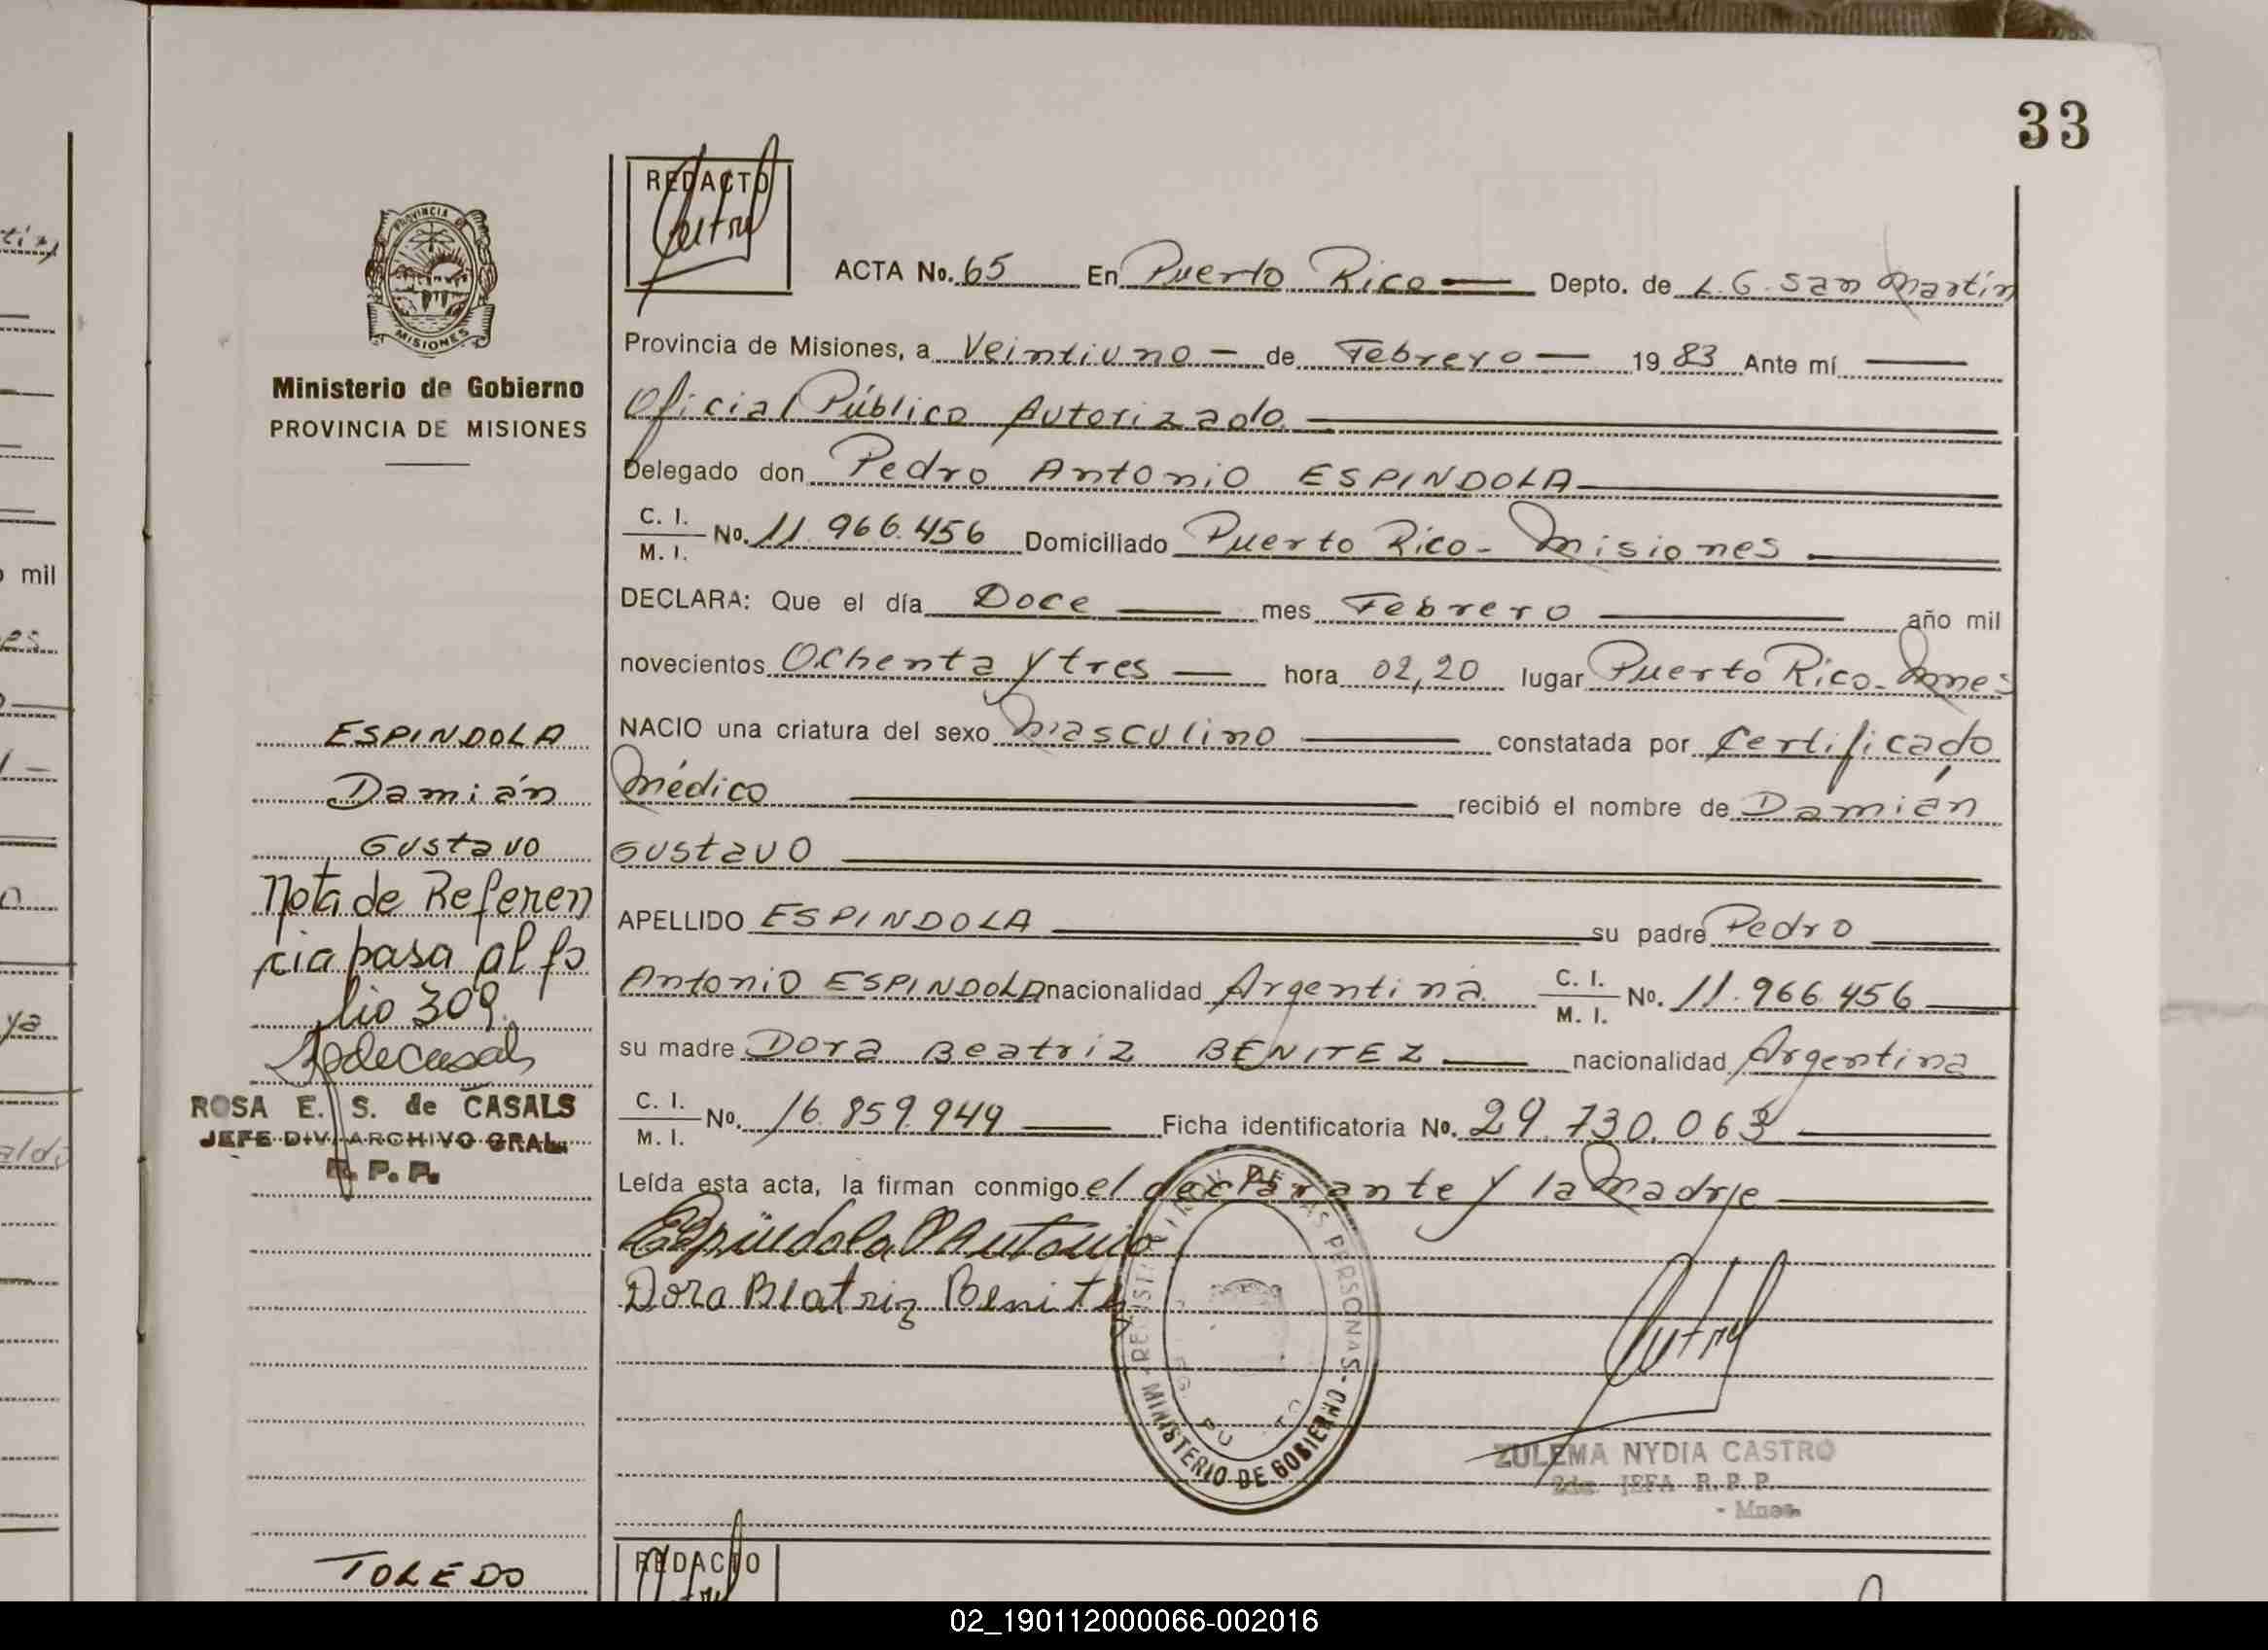 33
REDACTO
PROVINCIA DE
MISIONES
ACTA No. 65 En Puerto Rico Depto. de L.G. San Martín
Provincia de Misiones, a Veintiuno - de Febrero - 1983 Ante mí
Oficial Público Autorizado
Delegado don Pedro Antonio ESPINDOLA
C. I.
M. I. No. 11.966.456 Domiciliado Puerto Rico - Misiones
DECLARA: Que el día Doce mes Febrero año mil
novecientos Ochenta y tres hora 02,20 lugar Puerto Rico - Mnes
NACIO una criatura del sexo Masculino constatada por Certificado
Médico recibió el nombre de Damián
Gustavo
APELLIDO ESPINDOLA su padre Pedro
Antonio ESPINDOLA nacionalidad Argentina C. I.
M. I. No. 11.966.456
su madre Dora Beatriz BENITEZ nacionalidad Argentina
C. I.
M. I. No. 16.859.949 Ficha identificatoria No. 29.730.063
Leída esta acta, la firman conmigo el declarante y la Madre
Espindola P Antonio
Dora Beatriz Benitez
MINISTERIO DE GOBIERNO
DE LAS PERSONAS
ZULEMA NYDIA CASTRO
2da. JEFA R.P.P.
- Mnes.
Ministerio de Gobierno
PROVINCIA DE MISIONES
ESPINDOLA
Damián
Gustavo
Nota de Referen
cia pasa al fo
lio 309.
ROSA E. S. de CASALS
JEFE DIV. ARCHIVO GRAL.
R. P. P.
TOLEDO
REDACTO
mil
es
ya
aldo
02_190112000066-002016